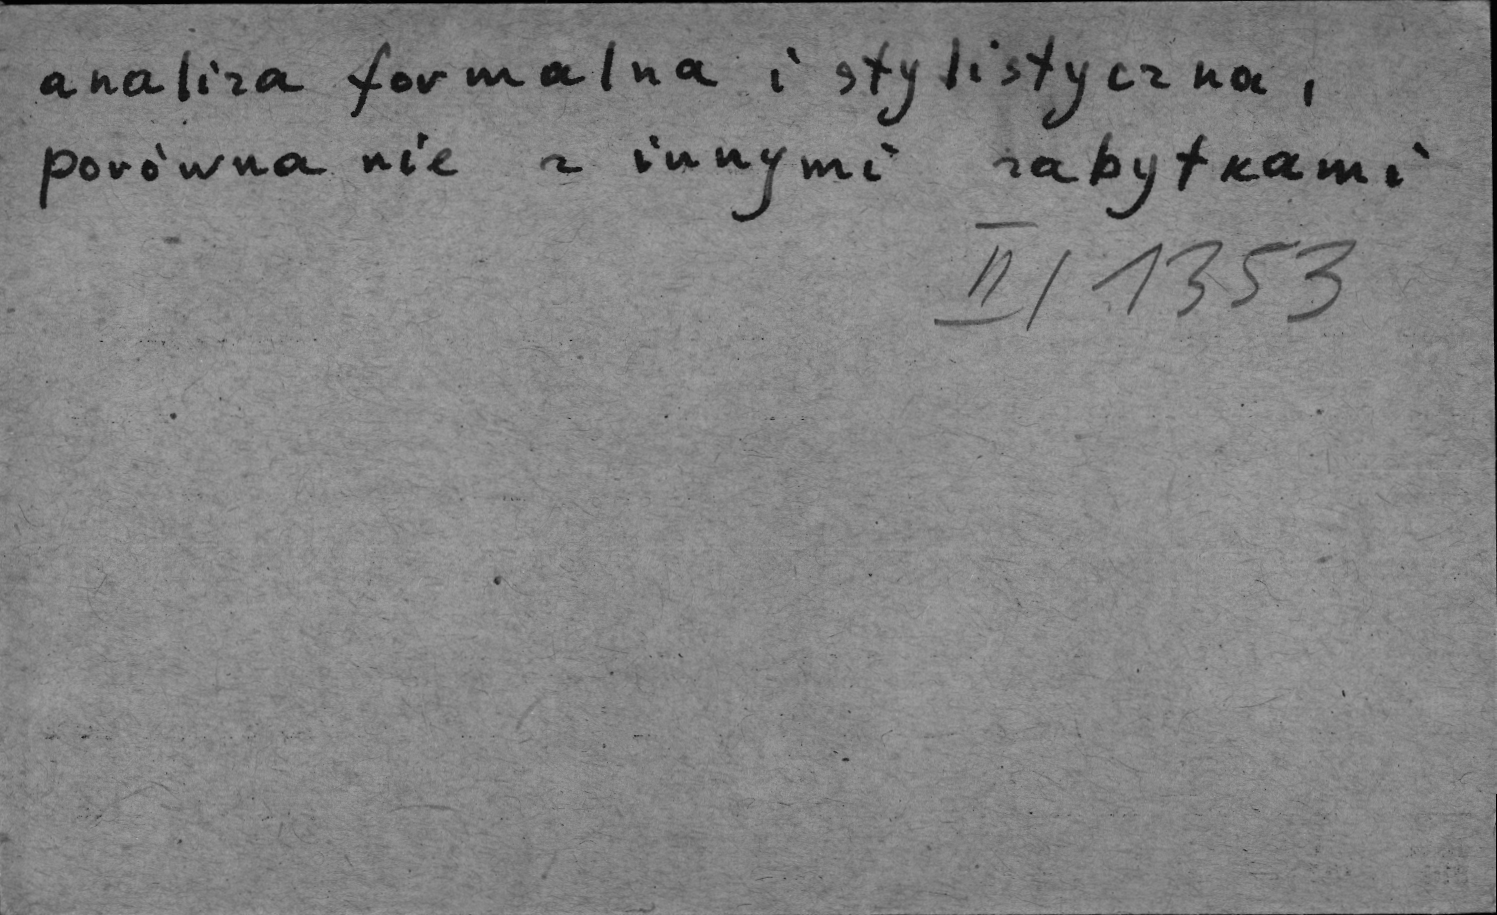 analiza formalna i stylistyczna,
porównanie z innymi zabytkami
II/1353